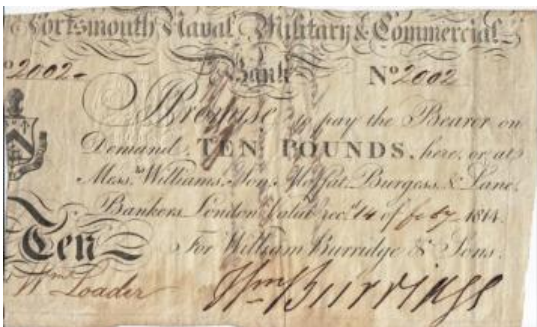 Portsmouth Naval Military & Commercial
Bank
No 2002 No 2002
I Promise to pay the Bearer on
Demand, TEN POUNDS, here, or at
Mess.rs Williams, Son, Moffat, Burgess, & Lane,
Bankers, London. Value rec.d 14 of 1814
Ten For William Burridge & Sons.
Wm Loader Wm Burridge